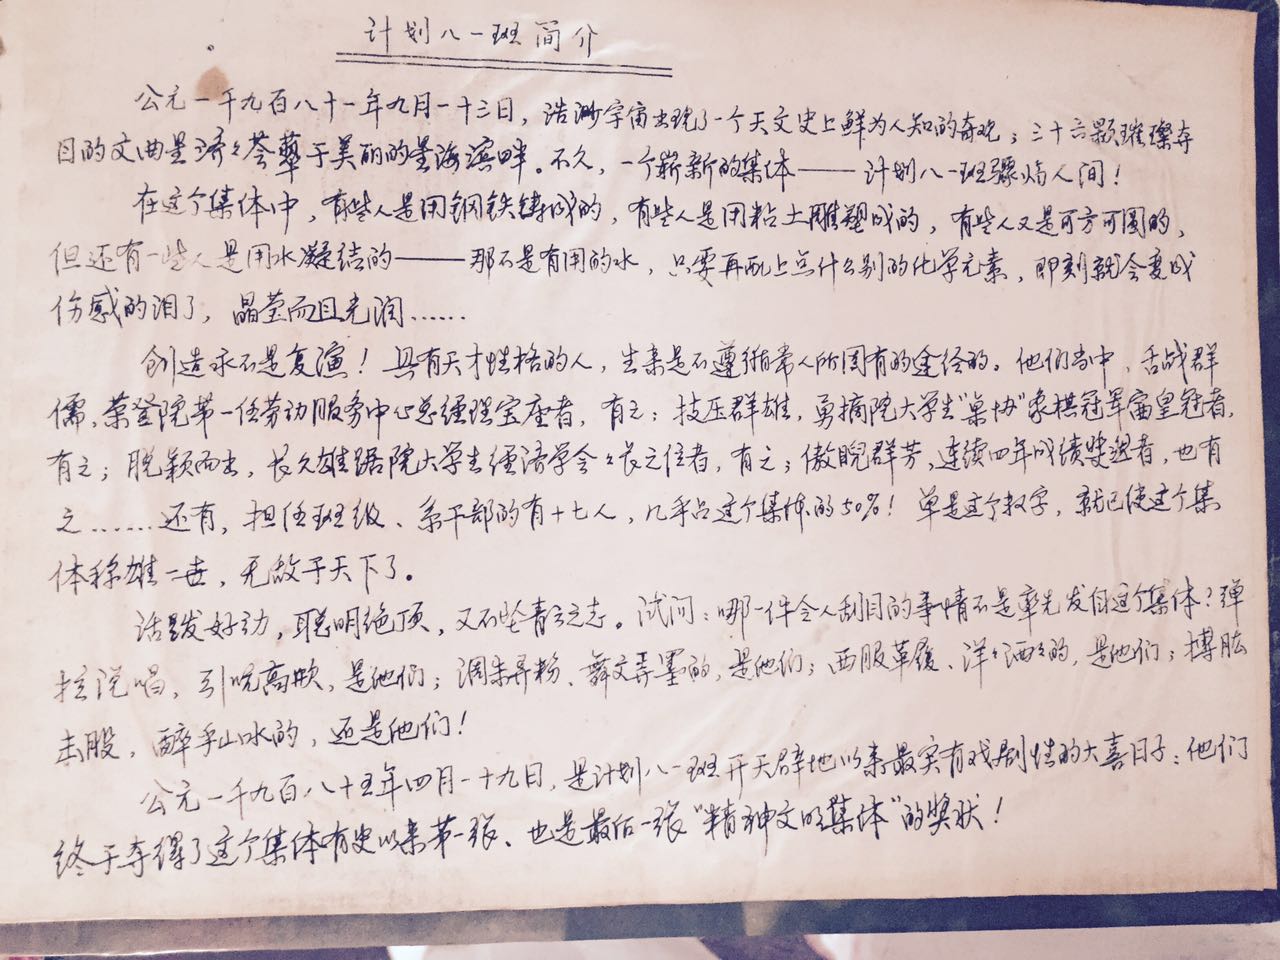 计划八一班简介
公元一千九百八十一年九月一十三日，浩渺宇宙出现了一个天文史上鲜为人知的奇观；三十六颗璀璨夺
目的文曲星济々荟萃于美丽的星海滨畔。不久，一个崭新的集体——计划八一班骤焰人间！
在这个集体中，有些人是用钢铁铸成的，有些人是用粘土雕塑成的，有些人又是可方可圆的，
但还有一些人是用水凝结的——那不是有用的水，只要再配上点什么别的化学元素，即刻就会变成
伤感的泪了，晶莹而且光润……
创造永不是复演！具有天才性格的人，生来是不遵循常人所固有的途径的。他们当中，舌战群
儒，荣登院第一任劳动服务中心总经理宝座者，有之；技压群雄，勇摘院大学生“桌协”象棋冠军宙皇冠者，
有之；脱颖而出，长久雄踞院大学生经济学会々长之位者，有之；傲睨群芳，连续四年成绩奖遥者，也有
之……还有，担任班级、系干部的有十七人，几乎占这个集体的50%！单是这个数字，就已使这个集
体称雄一世，无敌于天下了。
活泼好动，聪明绝顶，又不坠青云之志。试问：哪一件令人刮目的事情不是率先发自这个集体？弹
拉说唱，引吭高歌，是他们；调朱弄粉、舞文弄墨的，是他们；西服革履、洋々洒々的，是他们；搏肱
击股，醉乎山水的，还是他们！
公元一千九百八十五年四月一十九日，是计划八一班开天辟地以来最实有戏剧性的大喜日子：他们
终于夺得了这个集体有史以来第一张、也是最后一张“精神文明集体”的奖状！